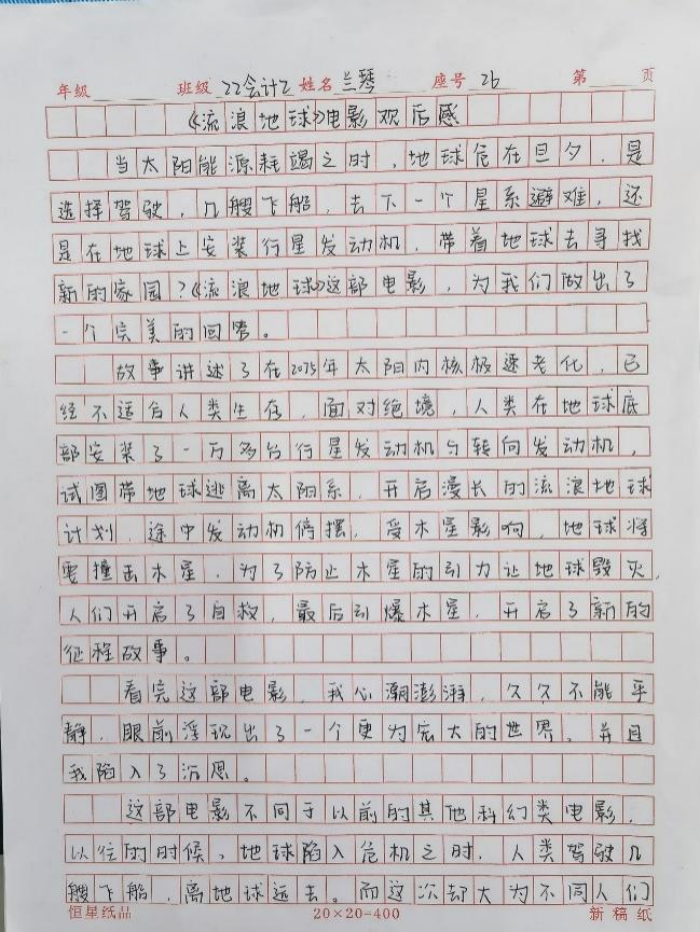 年级 班级 22会计2 姓名 兰琴 座号 26 第 页
《流浪地球》电影观后感
当太阳能源耗竭之时，地球危在旦夕，是
选择驾驶，几艘飞船，去下一个星系避难，还
是在地球上安装行星发动机，带着地球去寻找
新的家园？《流浪地球》这部电影，为我们做出了
一个完美的回答。
故事讲述了在2075年太阳内核极速老化，已
经不适合人类生存，面对绝境，人类在地球底
部安装了一万多台行星发动机与转向发动机，
试图带地球逃离太阳系，开启漫长的流浪地球
计划，途中发动机停摆，受木星影响，地球将
要撞击木星，为了防止木星的引力让地球毁灭，
人们开启了自救，最后引爆木星，开启了新的
征程故事。
看完这部电影，我心潮澎湃，久久不能平
静，眼前浮现出了一个更为宏大的世界，并且
我陷入了沉思。
这部电影不同于以前的其他科幻类电影，
以往的时候，地球陷入危机之时，人类驾驶几
艘飞船，离地球远去。而这次却大为不同人们
恒星纸品 20×20=400 新稿纸